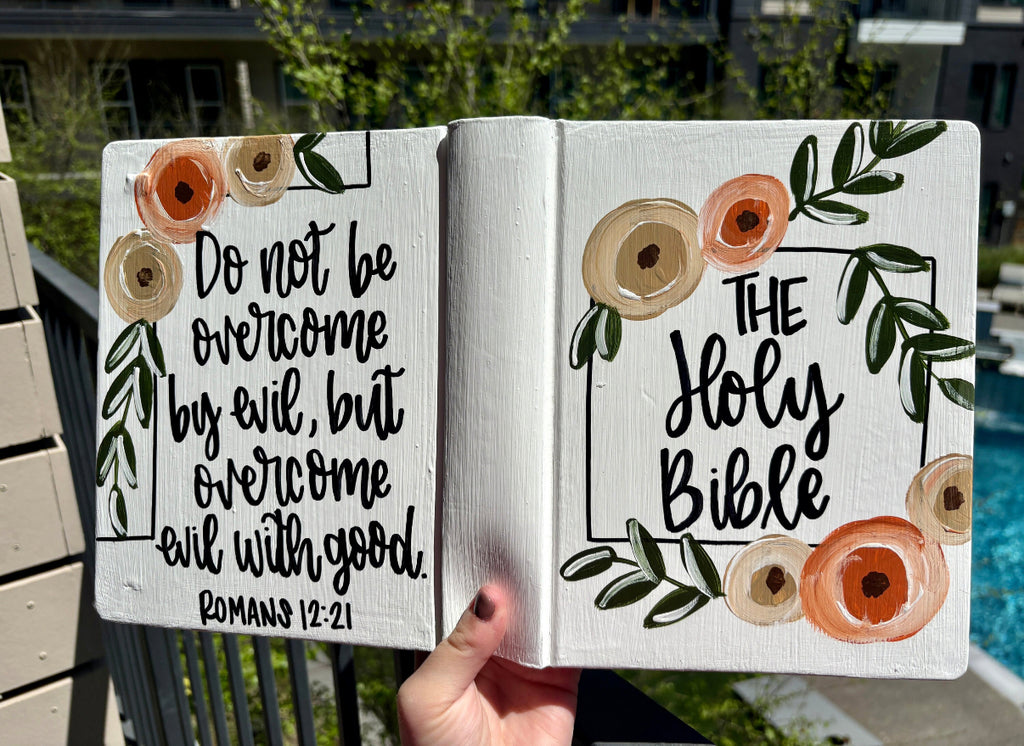 Do not be
overcome
by evil, but
overcome
evil with good.
ROMANS 12:21
THE
Holy
Bible